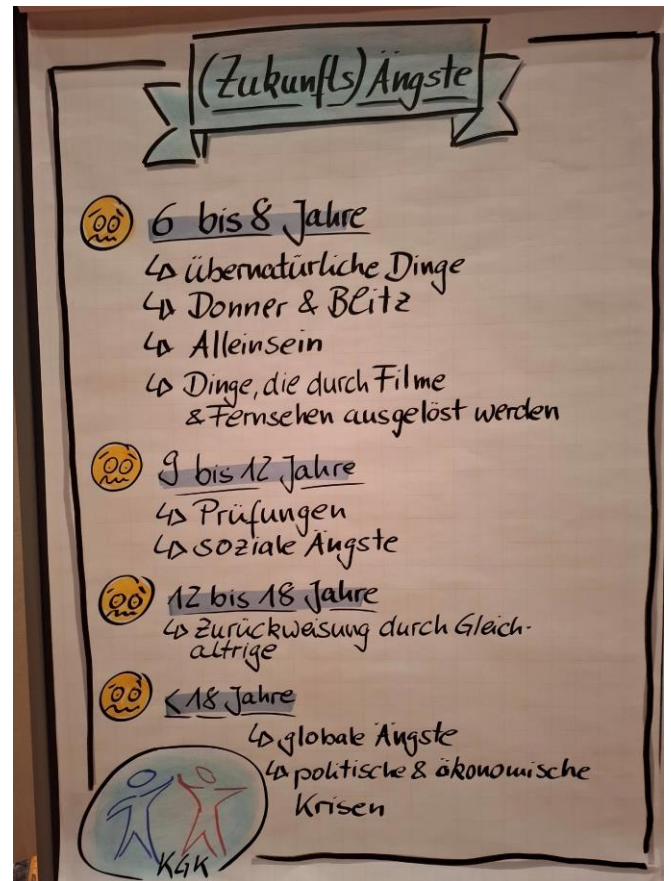 (Zukunfts)Ängste
6 bis 8 Jahre
↳ übernatürliche Dinge
↳ Donner & Blitz
↳ Alleinsein
↳ Dinge, die durch Filme
& Fernsehen ausgelöst werden
9 bis 12 Jahre
↳ Prüfungen
↳ soziale Ängste
12 bis 18 Jahre
↳ Zurückweisung durch Gleich-
altrige
< 18 Jahre
↳ globale Ängste
↳ politische & ökonomische
Krisen
KGK